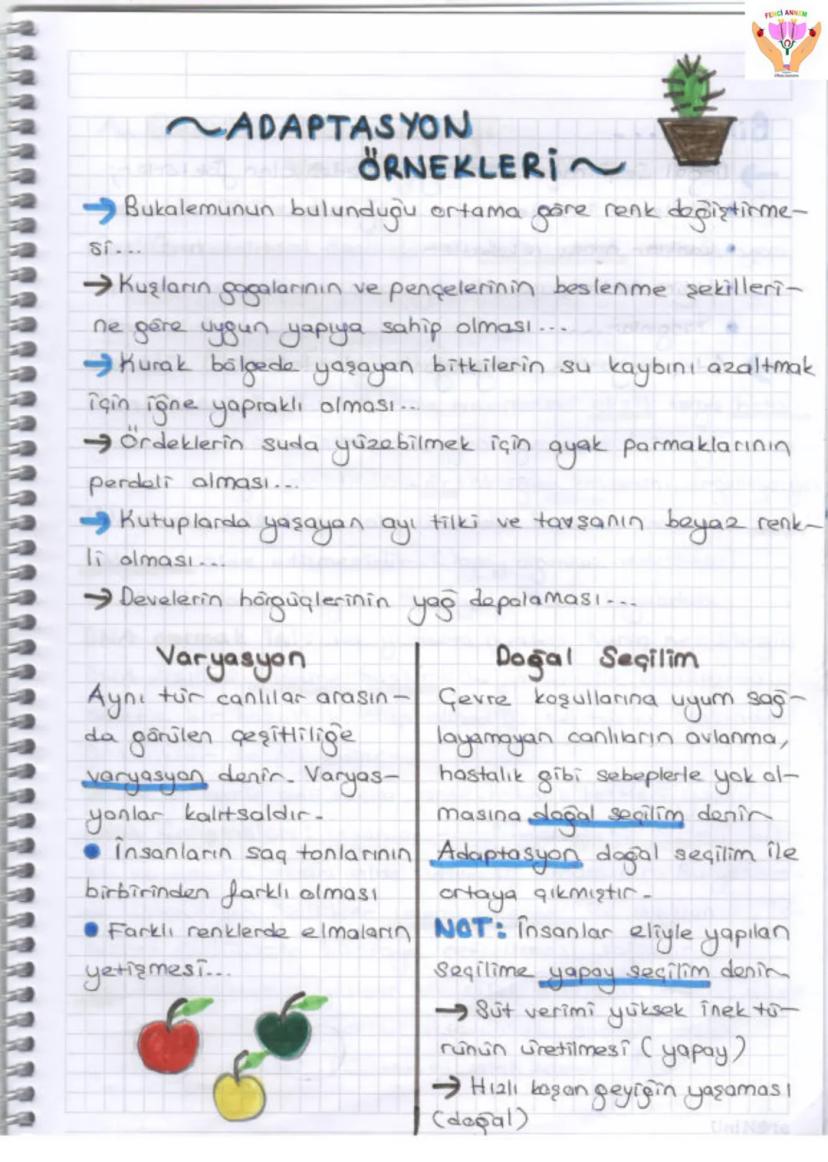 FENCİ ANNEM
~ADAPTASYON
ÖRNEKLERİ~
→ Bukalemunun bulunduğu ortama göre renk değiştirme-
si...
→ Kuşların gagalarının ve pençelerinin beslenme şekilleri-
ne göre uygun yapıya sahip olması...
→ Kurak bölgede yaşayan bitkilerin su kaybını azaltmak
için iğne yapraklı olması...
→ Ördeklerin suda yüzebilmek için ayak parmaklarının
perdeli olması...
→ Kutuplarda yaşayan ayı tilki ve tavşanın beyaz renk-
li olması...
→ Develerin hörgüçlerinin yağ depolaması...
Varyasyon
Aynı tür canlılar arasın-
da görülen çeşitliliğe
varyasyon denir. Varyas-
yonlar kalıtsaldır.
• İnsanların saç tonlarının
birbirinden farklı olması
• Farklı renklerde elmaların
yetişmesi...
Doğal Seçilim
Çevre koşullarına uyum sağ-
layamayan canlıların avlanma,
hastalık gibi sebeplerle yok ol-
masına doğal seçilim denir
Adaptasyon doğal seçilim ile
ortaya çıkmıştır.
NOT: İnsanlar eliyle yapılan
seçilime yapay seçilim denir
→ Süt verimi yüksek inek tü-
rünün üretilmesi (yapay)
→ Hızlı koşan geyiğin yaşaması
(doğal)